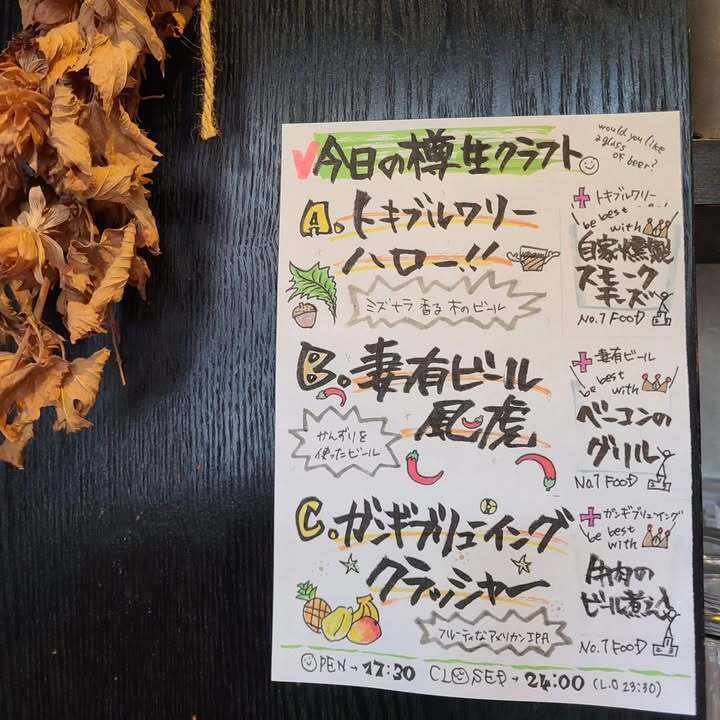 今日の樽生クラフト
would you like
a glass
of beer?
A. トキブルワリー
ハロー!!
ミズナラ香る木のビール
+トキブルワリー
be best
with
自家燻製
スモーク
チーズ
No.1 FOOD
B. 妻有ビール
風虎
かんずりを
使ったビール
+妻有ビール
be best
with
ベーコンの
グリル
No.1 FOOD
C. ガンギブリューイング
クラッシャー
フルーティなアメリカンIPA
+ガンギブリューイング
be best
with
牛肉の
ビール煮込み
No.1 FOOD
OPEN→17:30 CLOSED→24:00 (L.O 23:30)